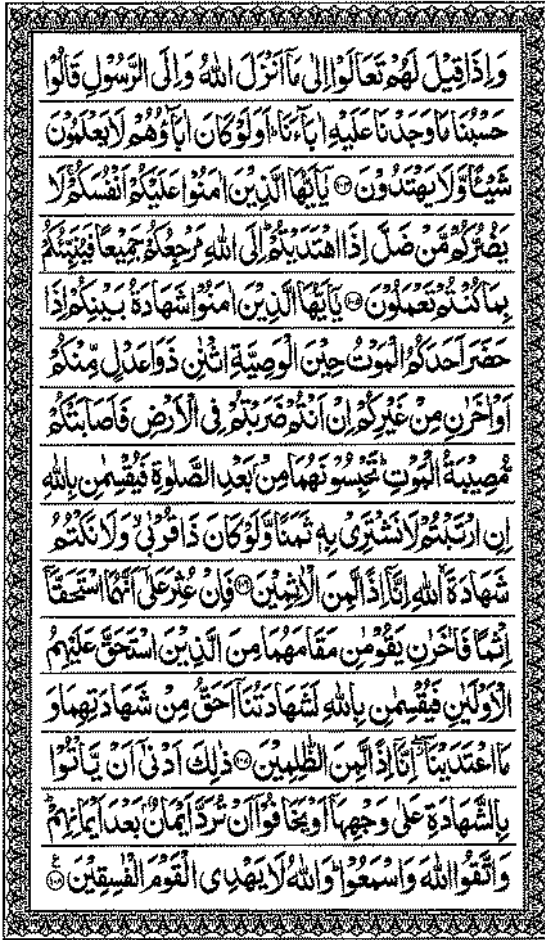 وَاِذَا قِيْلَ لَهُمْ تَعَالَوْا اِلٰى مَاۤ اَنْزَلَ اللّٰهُ وَاِلَى الرَّسُوْلِ قَالُوْا
حَسْبُنَا مَا وَجَدْنَا عَلَيْهِ اٰبَآءَنَا ؕ اَوَلَوْ كَانَ اٰبَآؤُهُمْ لَا يَعْلَمُوْنَ
شَيْئًا وَّلَا يَهْتَدُوْنَ ﴿۱۰۴﴾ يٰۤاَيُّهَا الَّذِيْنَ اٰمَنُوْا عَلَيْكُمْ اَنْفُسَكُمْ ۚ لَا
يَضُرُّكُمْ مَّنْ ضَلَّ اِذَا اهْتَدَيْتُمْ ؕ اِلَى اللّٰهِ مَرْجِعُكُمْ جَمِيْعًا فَيُنَبِّئُكُمْ
بِمَا كُنْتُمْ تَعْمَلُوْنَ ﴿۱۰۵﴾ يٰۤاَيُّهَا الَّذِيْنَ اٰمَنُوْا شَهَادَةُ بَيْنِكُمْ اِذَا
حَضَرَ اَحَدَكُمُ الْمَوْتُ حِيْنَ الْوَصِيَّةِ اثْنٰنِ ذَوَا عَدْلٍ مِّنْكُمْ
اَوْ اٰخَرٰنِ مِنْ غَيْرِكُمْ اِنْ اَنْتُمْ ضَرَبْتُمْ فِى الْاَرْضِ فَاَصَابَتْكُمْ
مُّصِيْبَةُ الْمَوْتِ ؕ تَحْبِسُوْنَهُمَا مِنْۢ بَعْدِ الصَّلٰوةِ فَيُقْسِمٰنِ بِاللّٰهِ
اِنِ ارْتَبْتُمْ لَا نَشْتَرِىْ بِهٖ ثَمَنًا وَّلَوْ كَانَ ذَا قُرْبٰى ۙ وَلَا نَكْتُمُ
شَهَادَةَ ۙ اللّٰهِ اِنَّاۤ اِذًا لَّمِنَ الْاٰثِمِيْنَ ﴿۱۰۶﴾ فَاِنْ عُثِرَ عَلٰۤى اَنَّهُمَا اسْتَحَقَّاۤ
اِثْمًا فَاٰخَرٰنِ يَقُوْمٰنِ مَقَامَهُمَا مِنَ الَّذِيْنَ اسْتَحَقَّ عَلَيْهِمُ
الْاَوْلَيٰنِ فَيُقْسِمٰنِ بِاللّٰهِ لَشَهَادَتُنَاۤ اَحَقُّ مِنْ شَهَادَتِهِمَا وَ
مَا اعْتَدَيْنَاۤ ۖ اِنَّاۤ اِذًا لَّمِنَ الظّٰلِمِيْنَ ﴿۱۰۷﴾ ذٰلِكَ اَدْنٰۤى اَنْ يَّاْتُوْا
بِالشَّهَادَةِ عَلٰى وَجْهِهَاۤ اَوْ يَخَافُوْۤا اَنْ تُرَدَّ اَيْمَانٌۢ بَعْدَ اَيْمَانِهِمْ ؕ
وَاتَّقُوا اللّٰهَ وَاسْمَعُوْا ؕ وَاللّٰهُ لَا يَهْدِى الْقَوْمَ الْفٰسِقِيْنَ ﴿۱۰۸﴾ ع